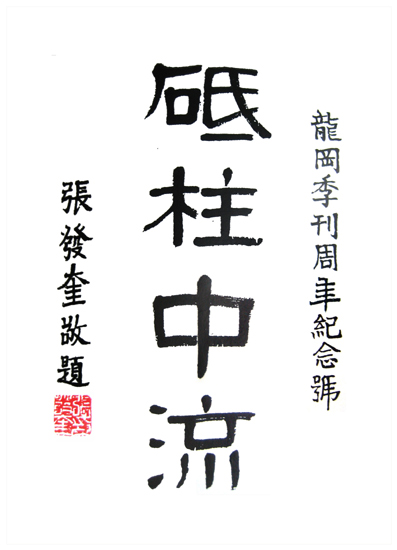 龍岡季刊周年紀念號
砥柱中流
張發奎敬題
張發奎